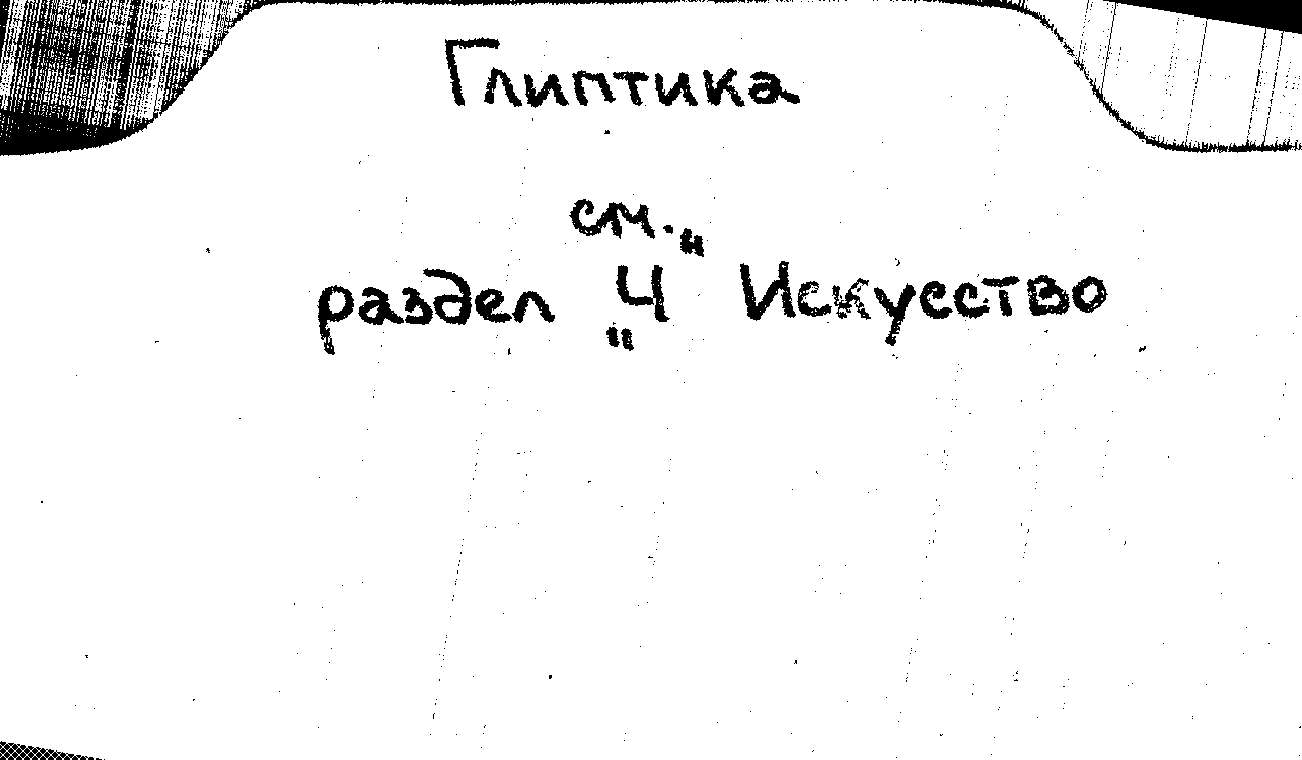 Глиптика
см.
раздел „Ч“ Искусство